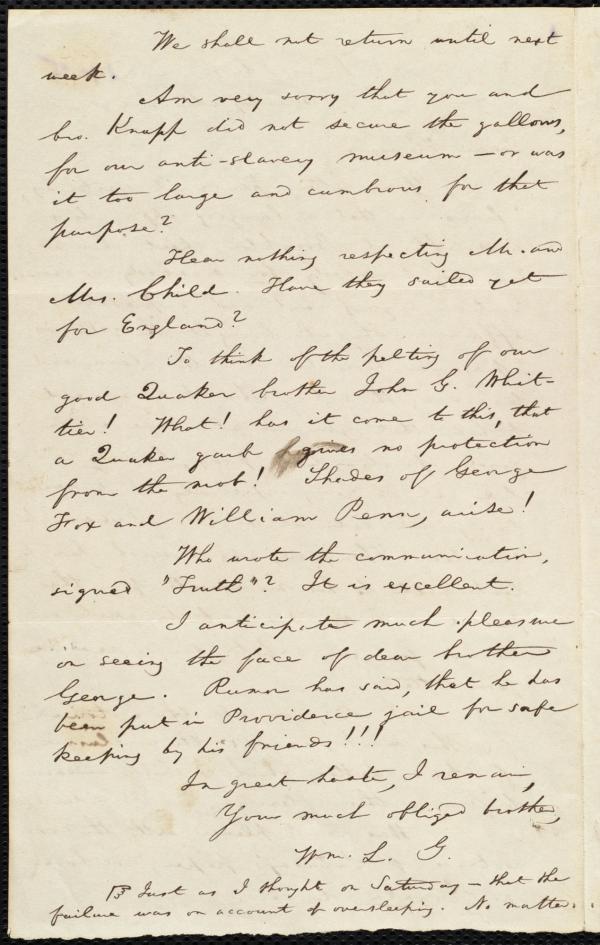 We shall not return until next
week.
Am very sorry that you and
bro. Knapp did not secure the gallows,
for our anti-slavery museum — or was
it too large and cumbrous for that
purpose?
Hear nothing respecting Mr. and
Mrs. Child. Have they sailed yet
for England?
To think of the pelting of our
good Quaker brother John G. Whit-
tier! What! has it come to this, that
a Quaker garb gives no protection
from the mob! Shades of George
Fox and William Penn, arise!
Who wrote the communication,
signed "Truth"? It is excellent.
I anticipate much pleasure
in seeing the face of dear brother
George. Rumor has said, that he has
been put in Providence jail for safe
keeping by his friends!!!
In great haste, I remain,
Your much obliged brother,
Wm. L. G.
Just as I thought on Saturday — that the
failure was on account of oversleeping. No matter.